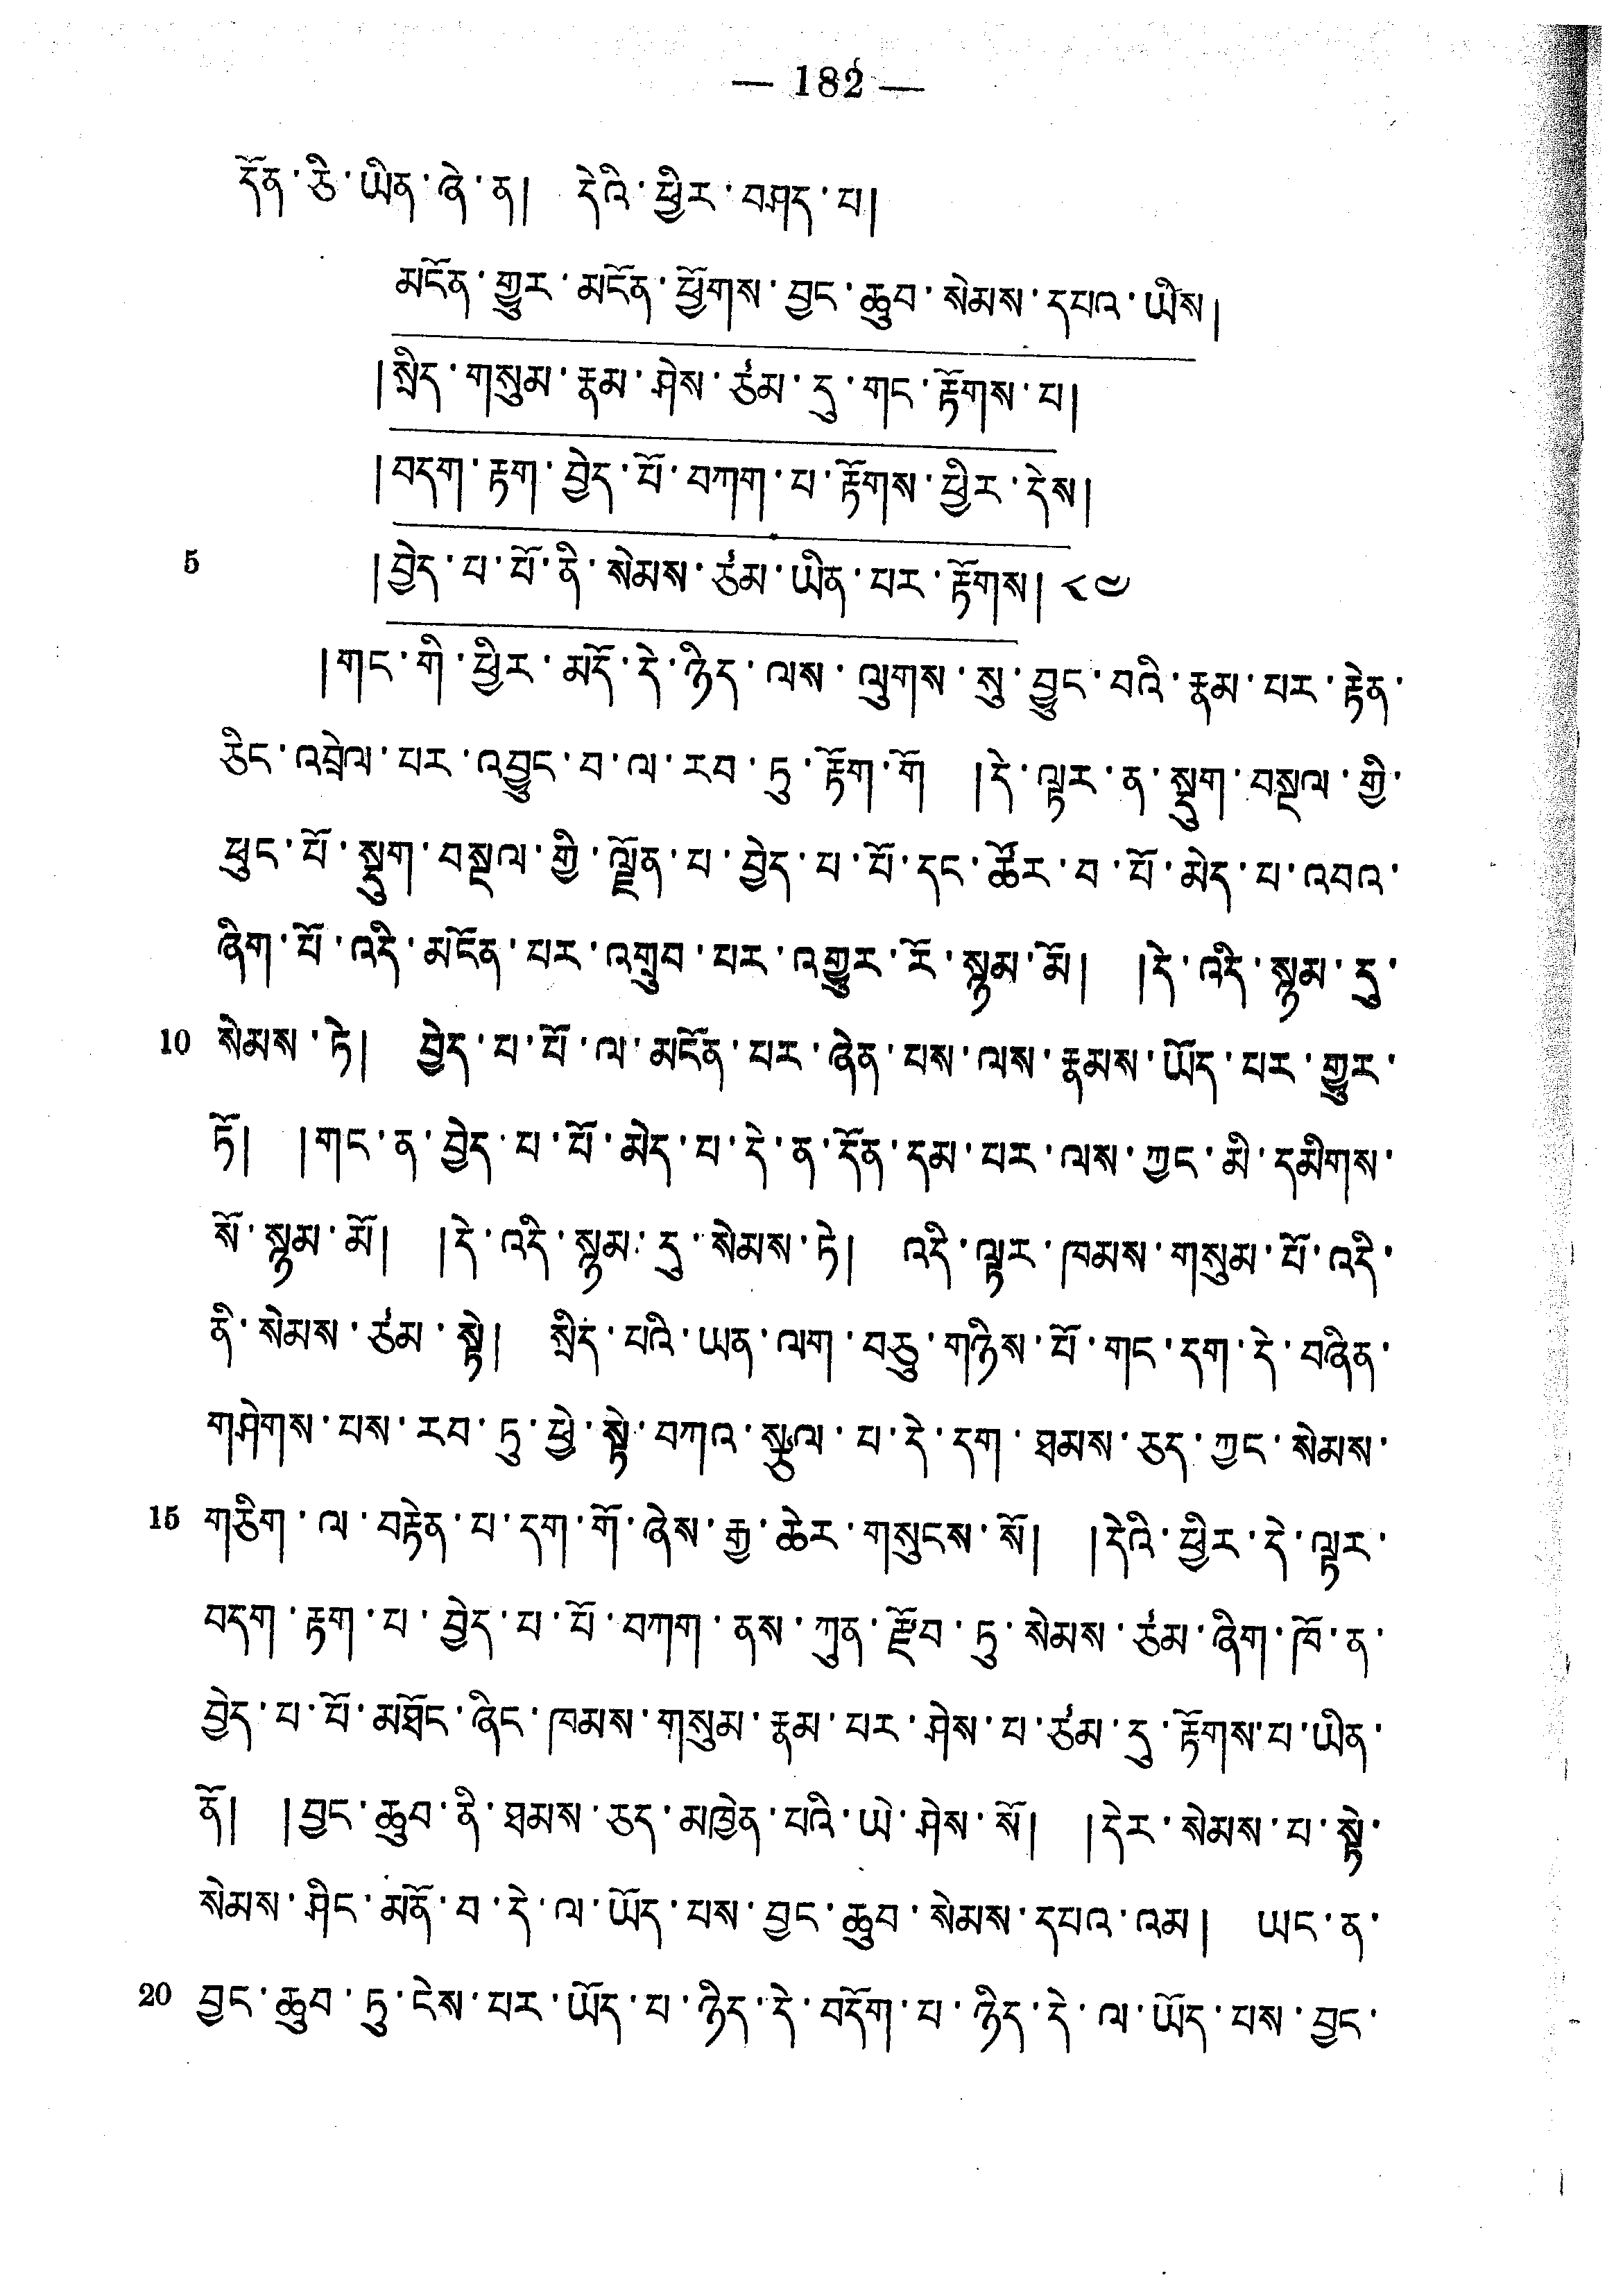 — 182 —
དོན་ཅི་ཡིན་ཞེ་ན། དེའི་ཕྱིར་བཤད་པ།
མངོན་གྱུར་མངོན་ཕྱོགས་བྱང་ཆུབ་སེམས་དཔའ་ཡིས།
།སྲིད་གསུམ་རྣམ་ཤེས་ཙམ་དུ་གང་རྟོགས་པ།
།བདག་རྟག་བྱེད་པོ་བཀག་པ་རྟོགས་ཕྱིར་དེས།
5 །བྱེད་པ་པོ་ནི་སེམས་ཙམ་ཡིན་པར་རྟོགས། ༨༥
།གང་གི་ཕྱིར་མདོ་དེ་ཉིད་ལས་ལུགས་སུ་བྱུང་བའི་རྣམ་པར་རྟེན་
ཅིང་འབྲེལ་པར་འབྱུང་བ་ལ་རབ་ཏུ་རྟོག་གོ །དེ་ལྟར་ན་སྡུག་བསྔལ་གྱི་
ཕུང་པོ་སྡུག་བསྔལ་གྱི་ལྗོན་པ་བྱེད་པ་པོ་དང་ཚོར་བ་པོ་མེད་པ་འབའ་
ཞིག་པོ་འདི་མངོན་པར་འགྲུབ་པར་འགྱུར་རོ་སྙམ་མོ། །དེ་འདི་སྙམ་དུ་
10 སེམས་ཏེ། བྱེད་པ་པོ་ལ་མངོན་པར་ཞེན་པས་ལས་རྣམས་ཡོད་པར་གྱུར་
ཏོ། །གང་ན་བྱེད་པ་པོ་མེད་པ་དེ་ན་དོན་དམ་པར་ལས་ཀྱང་མི་དམིགས་
སོ་སྙམ་མོ། །དེ་འདི་སྙམ་དུ་སེམས་ཏེ། འདི་ལྟར་ཁམས་གསུམ་པོ་འདི་
ནི་སེམས་ཙམ་སྟེ། སྲིད་པའི་ཡན་ལག་བཅུ་གཉིས་པོ་གང་དག་དེ་བཞིན་
གཤེགས་པས་རབ་ཏུ་ཕྱེ་སྟེ་བཀའ་སྩལ་པ་དེ་དག་ཐམས་ཅད་ཀྱང་སེམས་
15 གཅིག་ལ་བརྟེན་པ་དག་གོ་ཞེས་རྒྱ་ཆེར་གསུངས་སོ། །དེའི་ཕྱིར་དེ་ལྟར་
བདག་རྟག་པ་བྱེད་པ་པོ་བཀག་ནས་ཀུན་རྫོབ་ཏུ་སེམས་ཙམ་ཞིག་ཁོ་ན་
བྱེད་པ་པོ་མཐོང་ཞིང་ཁམས་གསུམ་རྣམ་པར་ཤེས་པ་ཙམ་དུ་རྟོགས་པ་ཡིན་
ནོ། །བྱང་ཆུབ་ནི་ཐམས་ཅད་མཁྱེན་པའི་ཡེ་ཤེས་སོ། །དེར་སེམས་པ་སྟེ་
སེམས་ཤིང་མནོ་བ་དེ་ལ་ཡོད་པས་བྱང་ཆུབ་སེམས་དཔའ་འམ། ཡང་ན་
20 བྱང་ཆུབ་ཏུ་ངེས་པར་ཡོད་པ་ཉིད་དེ་བདོག་པ་ཉིད་དེ་ལ་ཡོད་པས་བྱང་